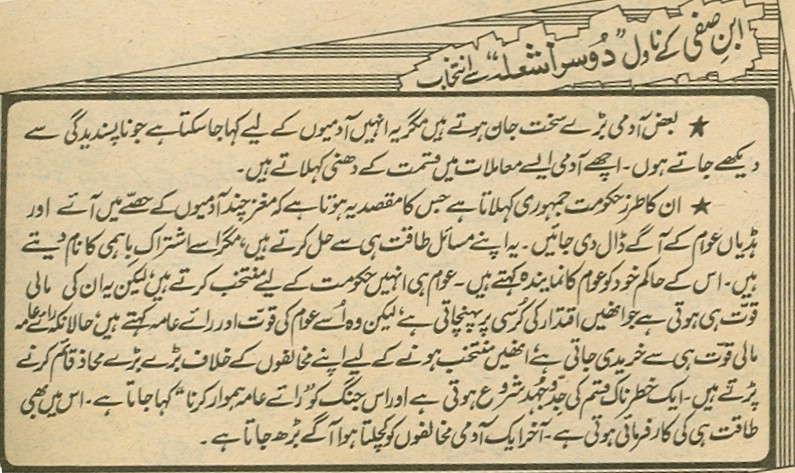 ابنِ صفی کے ناول "دُوسرا شعلہ" سے انتخاب
★ بعض آدمی بڑے سخت جان ہوتے ہیں مگر یہ انہیں آدمیوں کے لیے کہا جا سکتا ہے جو ناپسندیدگی سے
دیکھے جاتے ہوں۔ اچھے آدمی ایسے معاملات میں قسمت کے دھنی کہلاتے ہیں۔
★ ان کا طرز حکومت جمہوری کہلاتا ہے جس کا مقصد یہ ہوتا ہے کہ مغز چند آدمیوں کے حصّے میں آئے اور
ہڈیاں عوام کے آگے ڈال دی جائیں۔ یہ اپنے مسائل طاقت ہی سے حل کرتے ہیں، مگر اسے اشتراک باہمی کا نام دیتے
ہیں۔ اس کے حاکم خود کو عوام کا نمایندہ کہتے ہیں۔ عوام ہی انہیں حکومت کے لیے منتخب کرتے ہیں لیکن یہ ان کی مالی
قوت ہی ہوتی ہے جو انھیں اقتدار کی کُرسی پر پہنچاتی ہے، لیکن وہ اُسے عوام کی قوّت اور رائے عامہ کہتے ہیں، حالانکہ رائے عامہ
مالی قوّت ہی سے خریدی جاتی ہے، انھیں منتخب ہونے کے لیے اپنے مخالفوں کے خلاف بڑے بڑے محاذ قائم کرنے
پڑتے ہیں۔ ایک خطرناک قسم کی جدّوجُہد شروع ہوتی ہے اور اس جنگ کو "رائے عامہ ہموار کرنا" کہا جاتا ہے۔ اس میں بھی
طاقت ہی کی کارفرمائی ہوتی ہے۔ آخر ایک آدمی مخالفوں کو کچلتا ہوا آگے بڑھ جاتا ہے۔